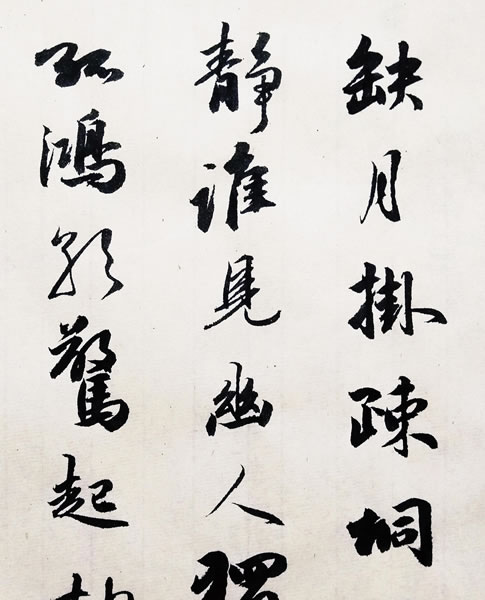 缺月掛疎桐
静誰見幽人獨
孤鴻影驚起却